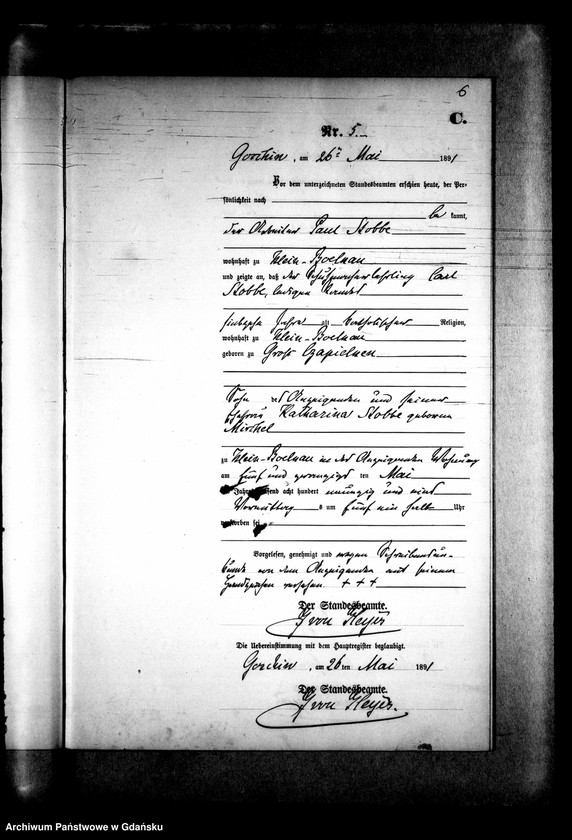 6
C.
Nr. 5.
Gorchin, am 26ten Mai 1891
Vor dem unterzeichneten Standesbeamten erschien heute, der Per-
sönlichkeit nach
be kannt,
der Arbeiter Paul Stobbe
wohnhaft zu Klein-Boelkau
und zeigte an, daß der Schuhmacherlehrling Carl
Stobbe, ledigen Standes
siebzehn Jahre alt, katholischer Religion,
wohnhaft zu Klein-Boelkau
geboren zu Groß Czapielken
Sohn des Anzeigenden und seiner
Ehefrau Katharina Stobbe geborene
Mischel
zu Klein-Boelkau in des Anzeigenden Wohnung
am fünf und zwanzigsten Mai
des Jahres tausend acht hundert neunzig und eins
Vormittags um fünf ein halb Uhr
verstorben sei
Vorgelesen, genehmigt und wegen Schreibensun-
kunde von dem Anzeigenden mit seinem
Handzeichen versehen + + +
Der Standesbeamte.
von Heyer
Die Uebereinstimmung mit dem Hauptregister beglaubigt.
Gorchin, am 26ten Mai 1891
Der Standesbeamte.
von Heyer.
Archiwum Państwowe w Gdańsku